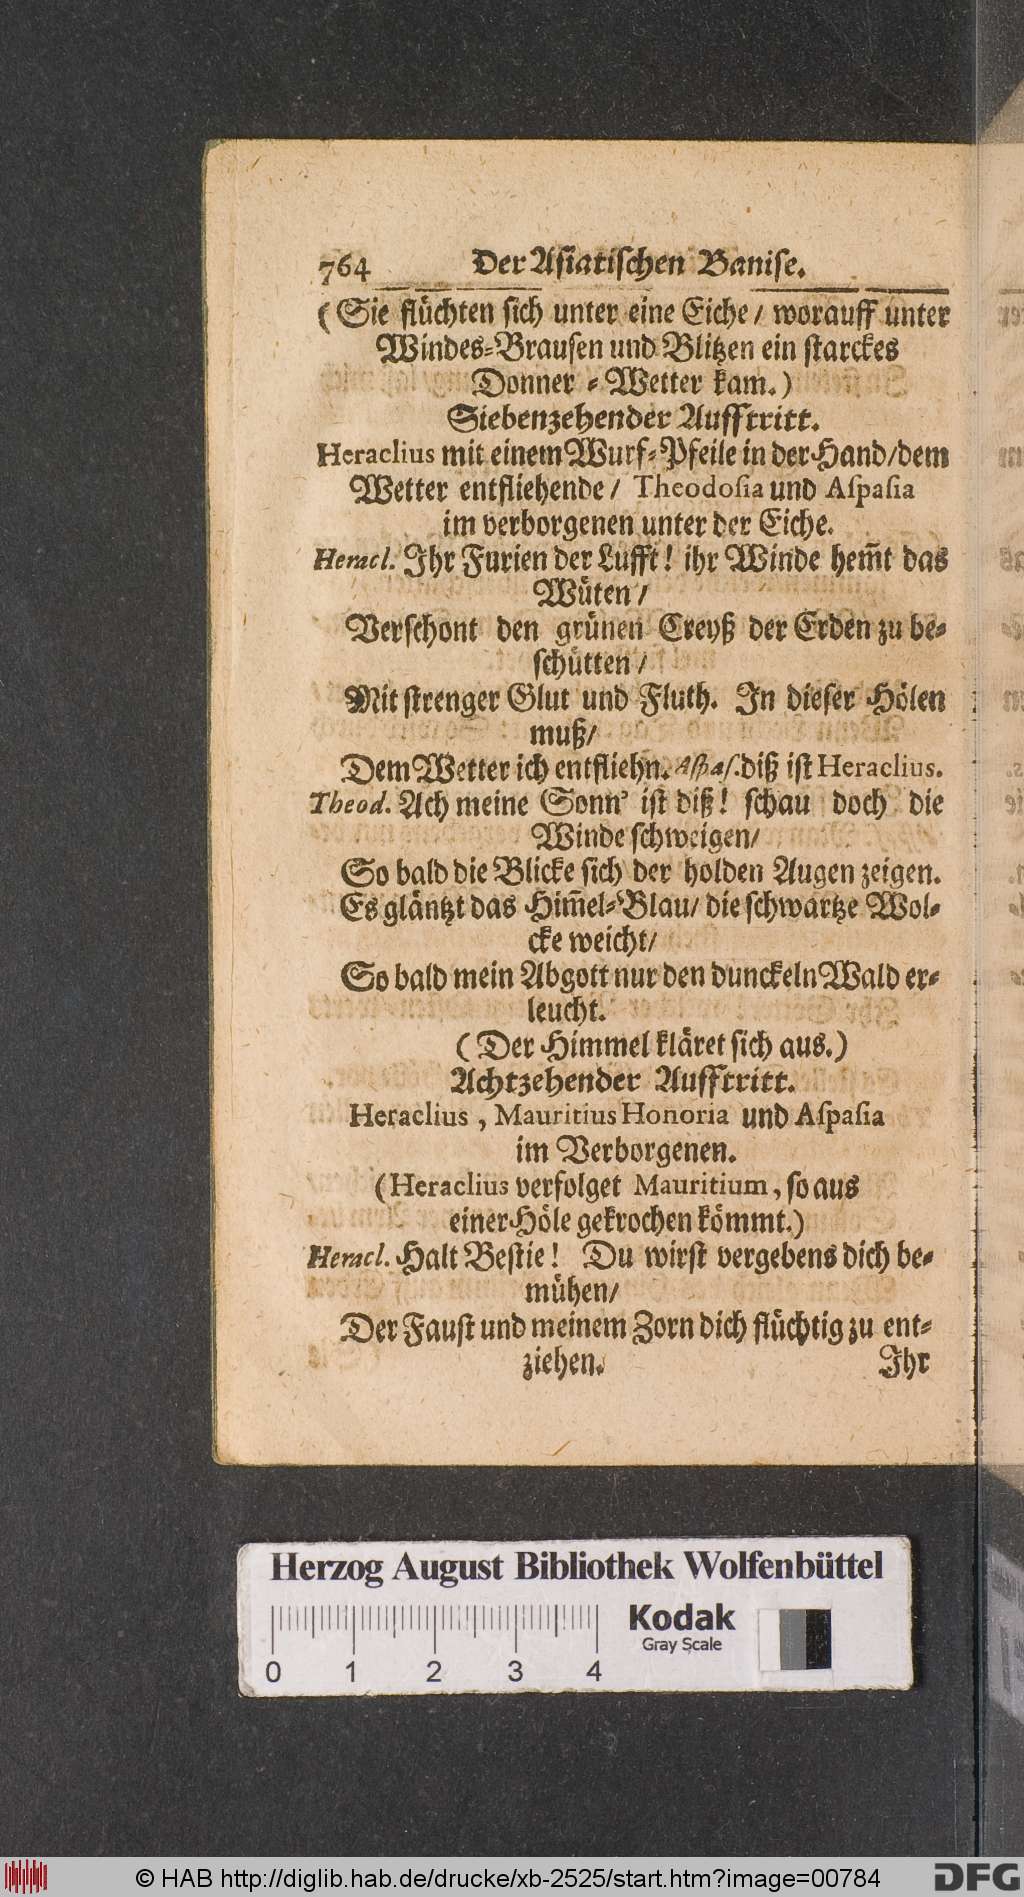 764 Der Asiatischen Banise.
(Sie flüchten sich unter eine Eiche/ worauff unter
Windes-Brausen und Blitzen ein starckes
Donner-Wetter kam.)
Siebenzehender Aufftritt.
Heraclius mit einem Wurf-Pfeile in der Hand/dem
Wetter entfliehende/ Theodosia und Aspasia
im verborgenen unter der Eiche.
Heracl. Ihr Furien der Lufft! ihr Winde hem̃t das
Wüten/
Verschont den grünen Creyß der Erden zu be-
schütten/
Mit strenger Glut und Fluth. In dieser Hölen
muß/
Dem Wetter ich entfliehn. Aspas. diß ist Heraclius.
Theod. Ach meine Sonn' ist diß! schau doch die
Winde schweigen/
So bald die Blicke sich der holden Augen zeigen.
Es gläntzt das Him̃el-Blau/ die schwartze Wol-
cke weicht/
So bald mein Abgott nur den dunckeln Wald er-
leucht.
(Der Himmel kläret sich aus.)
Achtzehender Aufftritt.
Heraclius, Mauritius Honoria und Aspasia
im Verborgenen.
(Heraclius verfolget Mauritium, so aus
einer Höle gekrochen kömmt.)
Heracl. Halt Bestie! Du wirst vergebens dich be-
mühen/
Der Faust und meinem Zorn dich flüchtig zu ent-
ziehen. Ihr
Herzog August Bibliothek Wolfenbüttel
Kodak
Gray Scale
0 1 2 3 4
© HAB http://diglib.hab.de/drucke/xb-2525/start.htm?image=00784
DFG